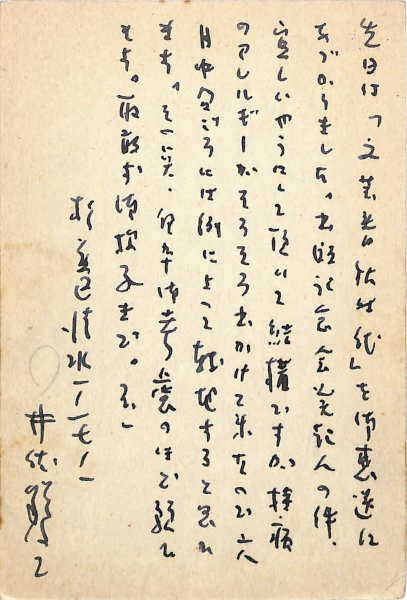 先日は「文芸者秘时代」を御恵送に
あづかりました。出版記念会発起人の件、
宜しいやうにして頂いて結構ですが、持病
のアレルギーがそろそろ出かけて来たので六
月中旬ごろには例によって転地すると思ひ
ます。その点、何卒御考慮のほど願ひ
ます。取敢ず御挨拶まで。
杉並区清水一ノ一七ノ一
井伏鱒二